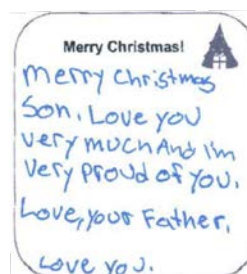 Merry Christmas!
Merry Christmas
Son. Love you
very much And I'm
Very Proud of you.
Love, your Father,
Love you.